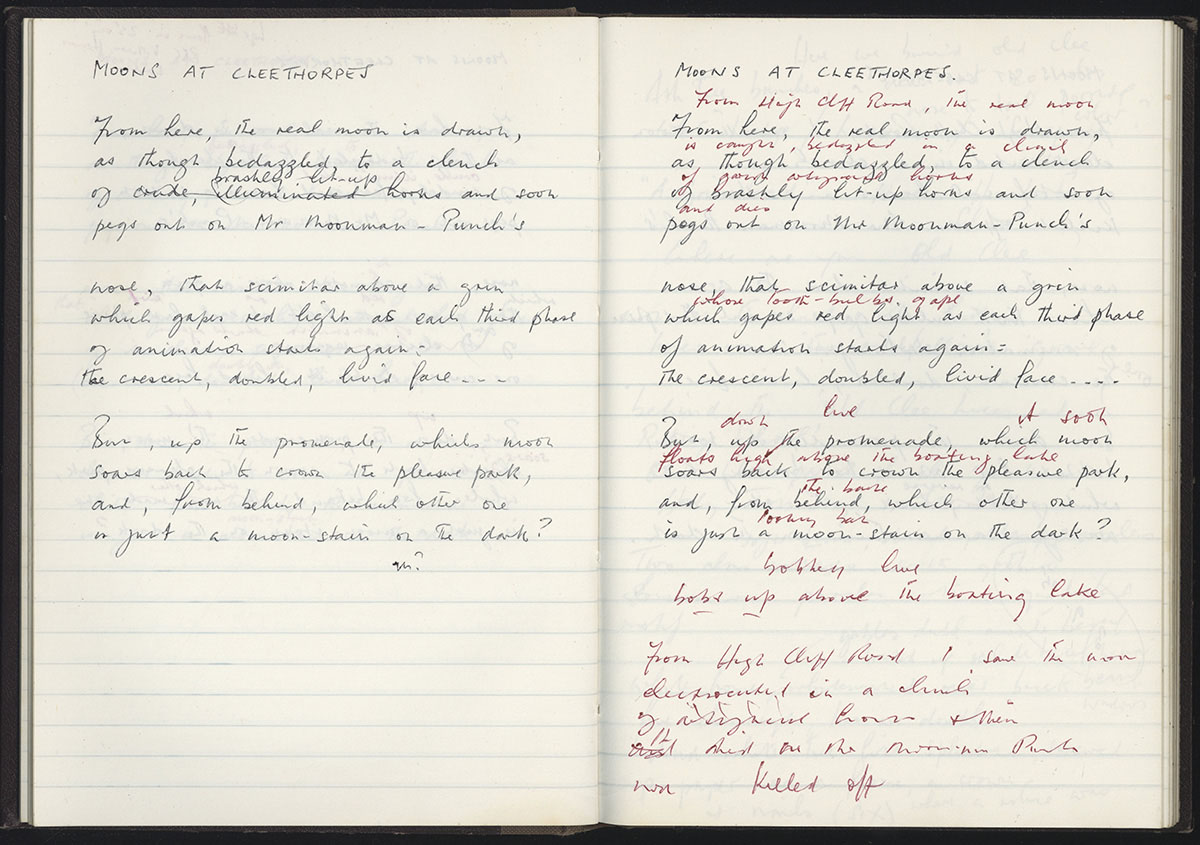 MOONS AT CLEETHORPES
From here, the real moon is drawn,
as though bedazzled, to a clench
brashly lit-up
of crude, illuminated horns and soon
pegs out on Mr Moonman-Punch's
nose, that scimitar above a grin
which gapes red light as each third phase
of animation starts again:
the crescent, doubled, livid face....
But, up the promenade, which moon
soars back to crown the pleasure park,
and, from behind, which other one
is just a moon-stain on the dark?
MOONS AT CLEETHORPES.
From High Cliff Road, the real moon
From here, the real moon is drawn,
is caught, bedazzled in a clench
as though bedazzled, to a clench
of horns
of brashly lit-up horns and soon
and dies
pegs out on Mr Moonman-Punch's
nose, that scimitar above a grin
whose tooth-bulbs gape
which gapes red light as each third phase
of animation starts again:
the crescent, doubled, livid face....
down live
But, up the promenade, which moon
floats high above the boating lake
soars back to crown the pleasure park,
the back
and, from behind, which other one
is just a moon-stain on the dark?
live
bobs up above the boating lake
From High Cliff Road I saw the moon
electrocuted in a clench
of horns & then
died on the moon-man Punch
Killed off